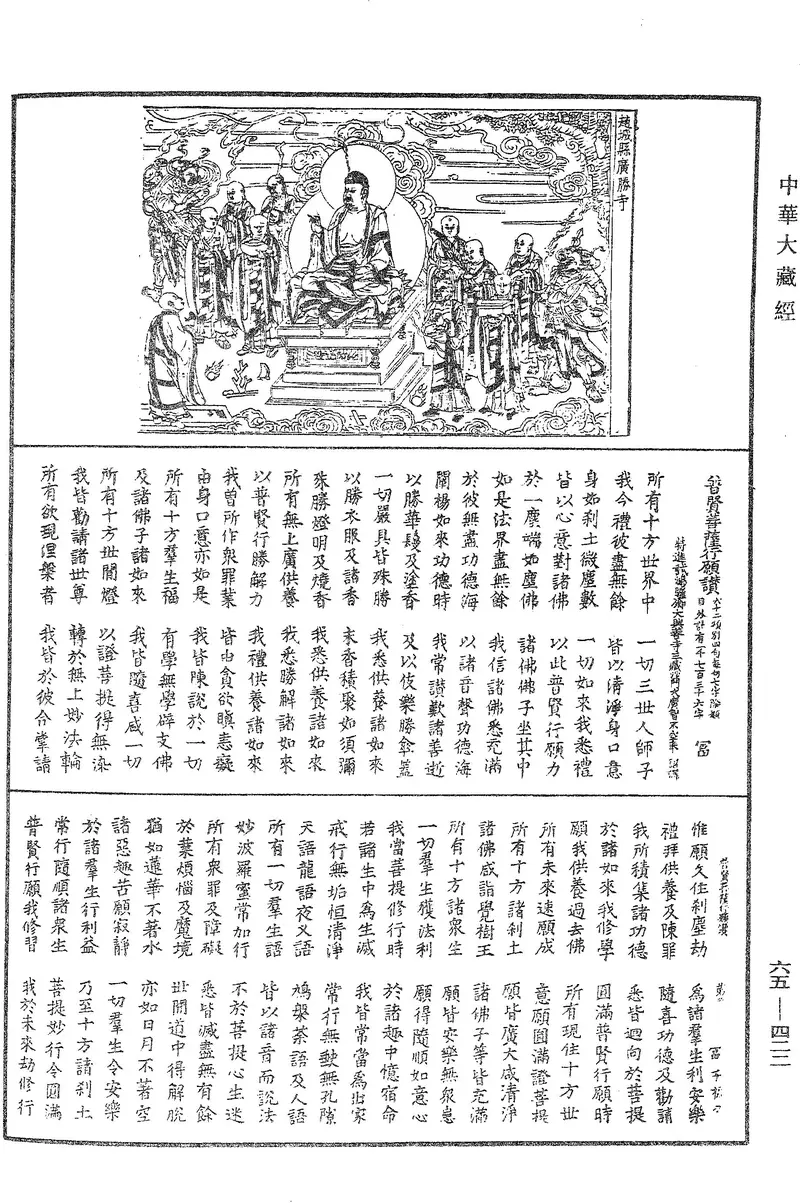 中華大藏經
趙城縣廣勝寺
普賢菩薩行願讚
所有十方世界中 一切三世人師子
我今禮彼盡無餘 皆以清淨身口意
身如刹土微塵數 一切如來我悉禮
皆以心意對諸佛 以此普賢行願力
於一塵端如塵佛 諸佛佛子坐其中
如是法界盡無餘 我信諸佛悉充滿
於彼無盡功德海 以諸音聲功德海
闡楊如來功德時 我常讚歎諸善逝
以勝華鬘及塗香 及以伎樂勝傘蓋
一切嚴具皆殊勝 我悉供養諸如來
以勝衣服及諸香 末香積聚如須彌
殊勝燈明及燒香 我悉供養諸如來
所有無上廣供養 我悉勝解諸如來
以普賢行勝解力 我禮供養諸如來
我曾所作衆罪業 皆由貪欲瞋恚癡
由身口意亦如是 我皆陳說於一切
所有十方羣生福 有學無學辟支佛
及諸佛子諸如來 我皆隨喜咸一切
所有十方世間燈 以證菩提得無染
我皆勸請諸世尊 轉於無上妙法輪
所有欲現涅槃者 我皆於彼合掌請
惟願久住刹塵劫 爲諸羣生利安樂
禮拜供養及陳罪 隨喜功德及勸請
我所積集諸功德 悉皆迴向於菩提
於諸如來我修學 圓滿普賢行願時
願我供養過去佛 所有現住十方世
所有未來速願成 意願圓滿證菩提
所有十方諸刹土 願皆廣大咸清淨
諸佛咸詣覺樹王 諸佛子等皆充滿
所有十方諸衆生 願皆安樂無衆患
一切羣生獲法利 願得隨順如意心
我當菩提修行時 於諸趣中憶宿命
若諸生中爲生滅 我皆常當爲出家
戒行無垢恒清淨 常行無缺無孔隙
天語龍語夜叉語 鳩槃荼語及人語
所有一切羣生語 皆以諸音而說法
妙波羅蜜常加行 不於菩提心生迷
所有衆罪及障礙 悉皆滅盡無有餘
於業煩惱及魔境 世間道中得解脫
猶如蓮華不著水 亦如日月不著空
諸惡趣苦願寂靜 一切羣生令安樂
於諸羣生行利益 乃至十方諸刹土
常行隨順諸衆生 菩提妙行令圓滿
普賢行願我修習 我於未來劫修行
六五—四二二